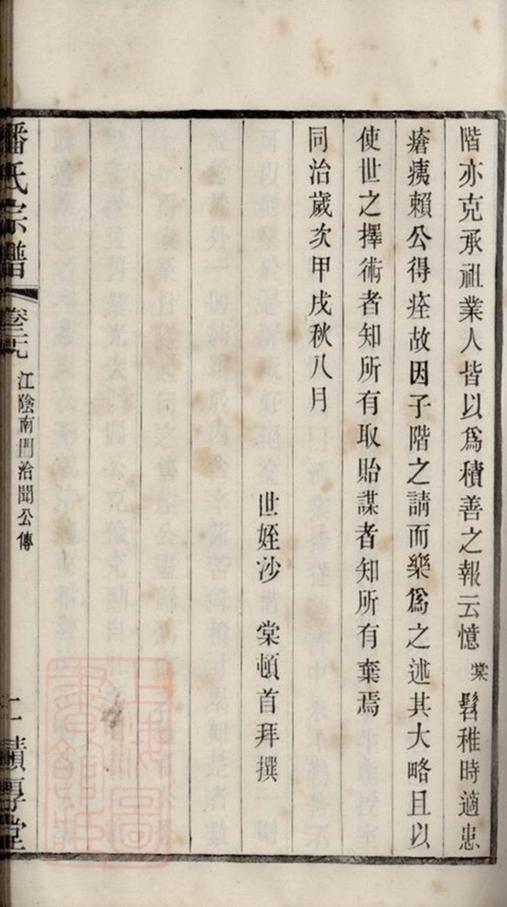 階亦克承祖業人皆以爲積善之報云憶棠髫稚時適患
瘡痍賴公得痊故因子階之請而樂爲之述其大略且以
使世之擇術者知所有取貽謀者知所有棄焉
同治歲次甲戌秋八月
世姪沙棠頓首拜撰
潘氏宗譜
卷三九
江陰南門治聞公傳
二